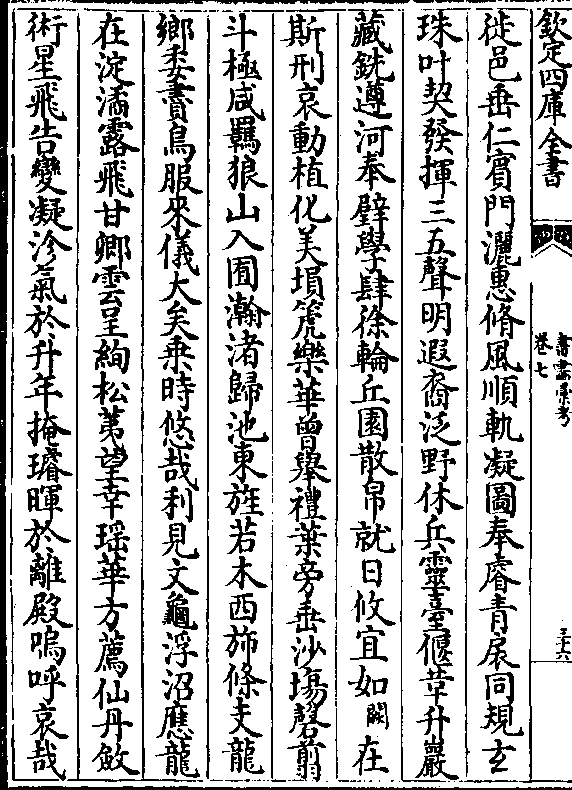 欽定四庫全書
書畫彙考
卷七
三十六
徙邑垂仁賓門灑惠脩風順軌凝圖奉睿青扆同規玄
珠叶契發揮三五聲明遐裔泛野休兵靈臺偃草升巖
藏銑遵河奉璧學肆徐輪丘園散帛就日攸宜如闕在
斯刑哀動植化美塤箎樂華曾舉禮葉旁垂沙塲磬翦
斗極咸羈狼山入囿瀚渚歸池東旌若木西斾條支龍
鄉委賮鳥服來儀大矣乗時悠哉利見文龜浮沼應龍
在淀滴露飛甘卿雲呈絢松茀望幸瑶華方薦仙丹斂
術星飛告變凝沴氣於升年掩璿暉於離殿嗚呼哀哉